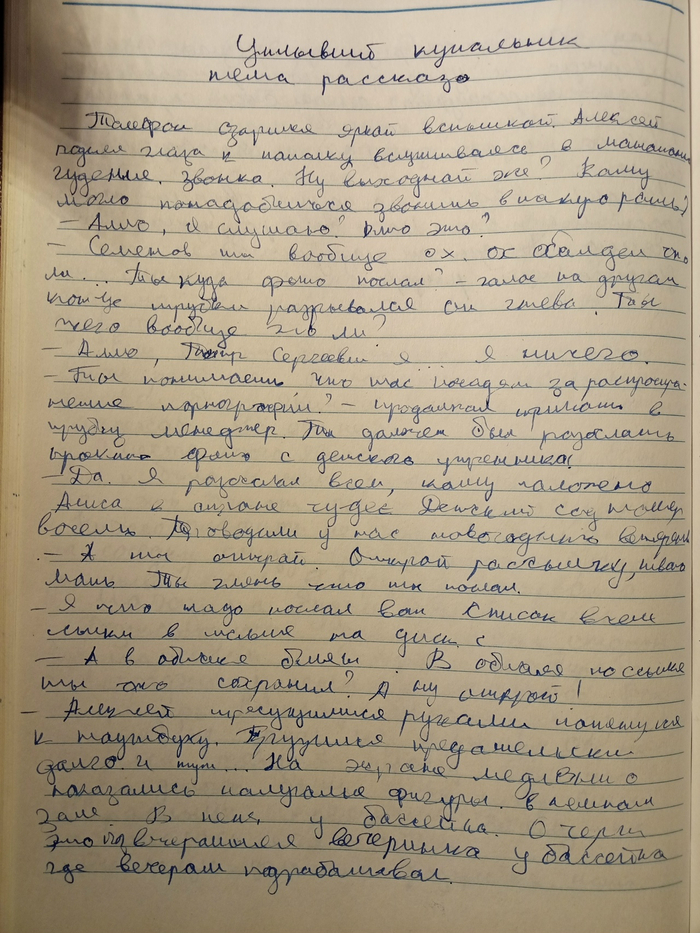 Уплывший купальник
тема рассказа
Телефон озарился яркой вспышкой. Алексей
поднял глаза к потолку вслушиваясь в
гудение звонка. Ну выходной же? Кому
могло понадобиться звонить в такую рань?
– Алло, я слушаю? Кто это?
– Семенов ты вообще ох. ох охалдел что
ли... Ты куда фото послал? – голос на другом
конце трубки разрывался от гнева. Ты
чего вообще это ли?
– Алло, Сергеевич я... я ничего.
– Ты понимаешь что нас посадят за распростра-
нение порнографии? – продолжал кричать в
трубку менеджер. Ты должен был разослать
фото с детского утренника!
– Да. Я разослал всем, кому положено
Алиса в стране чудес Детский сад номер
восемь. Проводили у нас новогоднюю
– А ты открой. Открой рассылку, твою
мать Ты глянь что ты послал.
– Я что надо послал вам Список
ссылки в на диск с
– А в облаке блять. В облаке по ссылке
ты что сохранил? А ну открой!
– Алексей трясущимися руками потянулся
к ноутбуку. Грузился предательски
долго и туго... На экране медленно
показались полуголые фигуры. в темном
зале. В пене, у бассейна. О черт
Это вчерашняя вечеринка у бассейна
где вечерам подрабатывал.